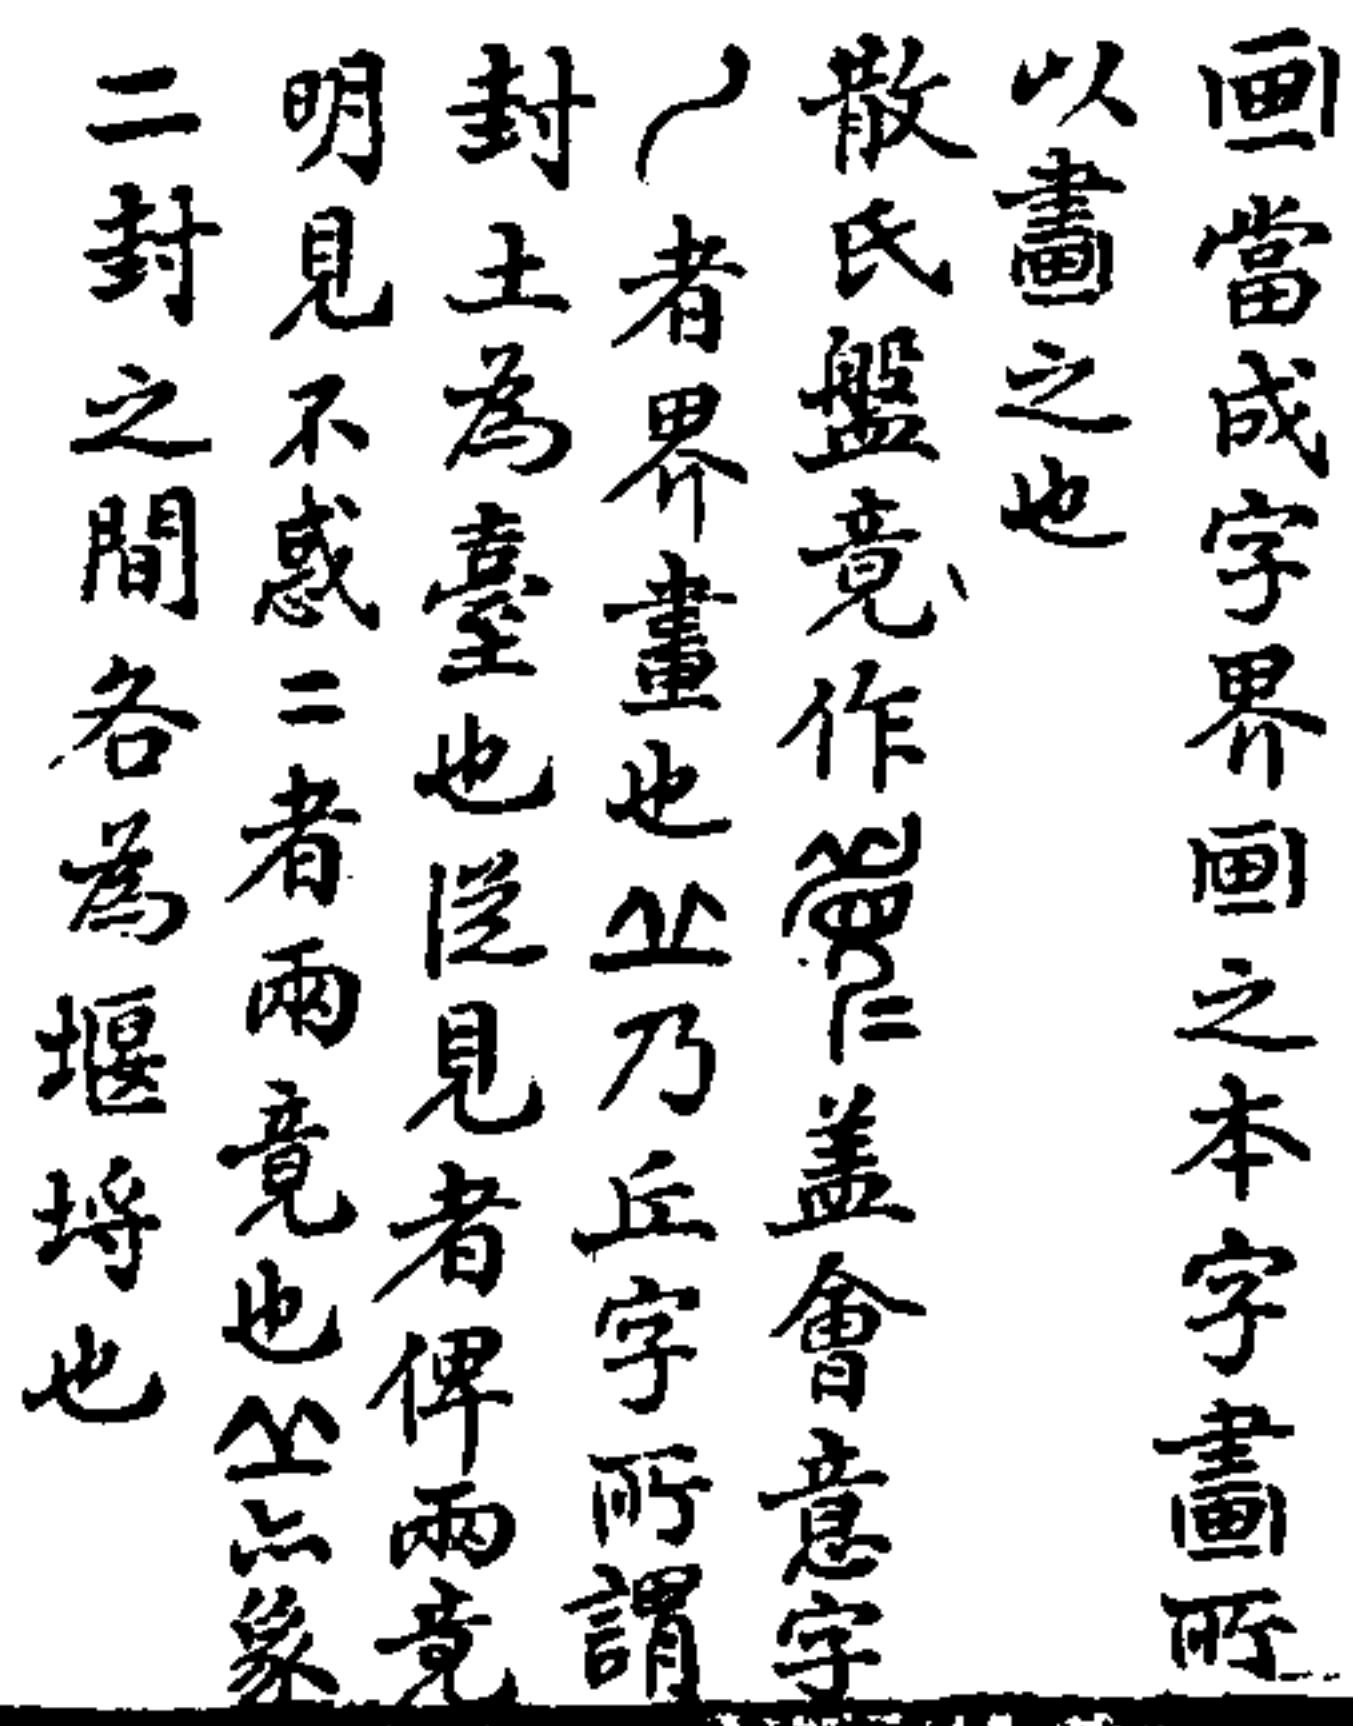 画當成字界画之本字畫所
以畫之也
散氏盤竟作蓋會意字
者界畫也乃丘字所謂
封土為臺也從見者俾兩竟
明見不惑二者兩竟也亦象
二封之間各為堰埒也